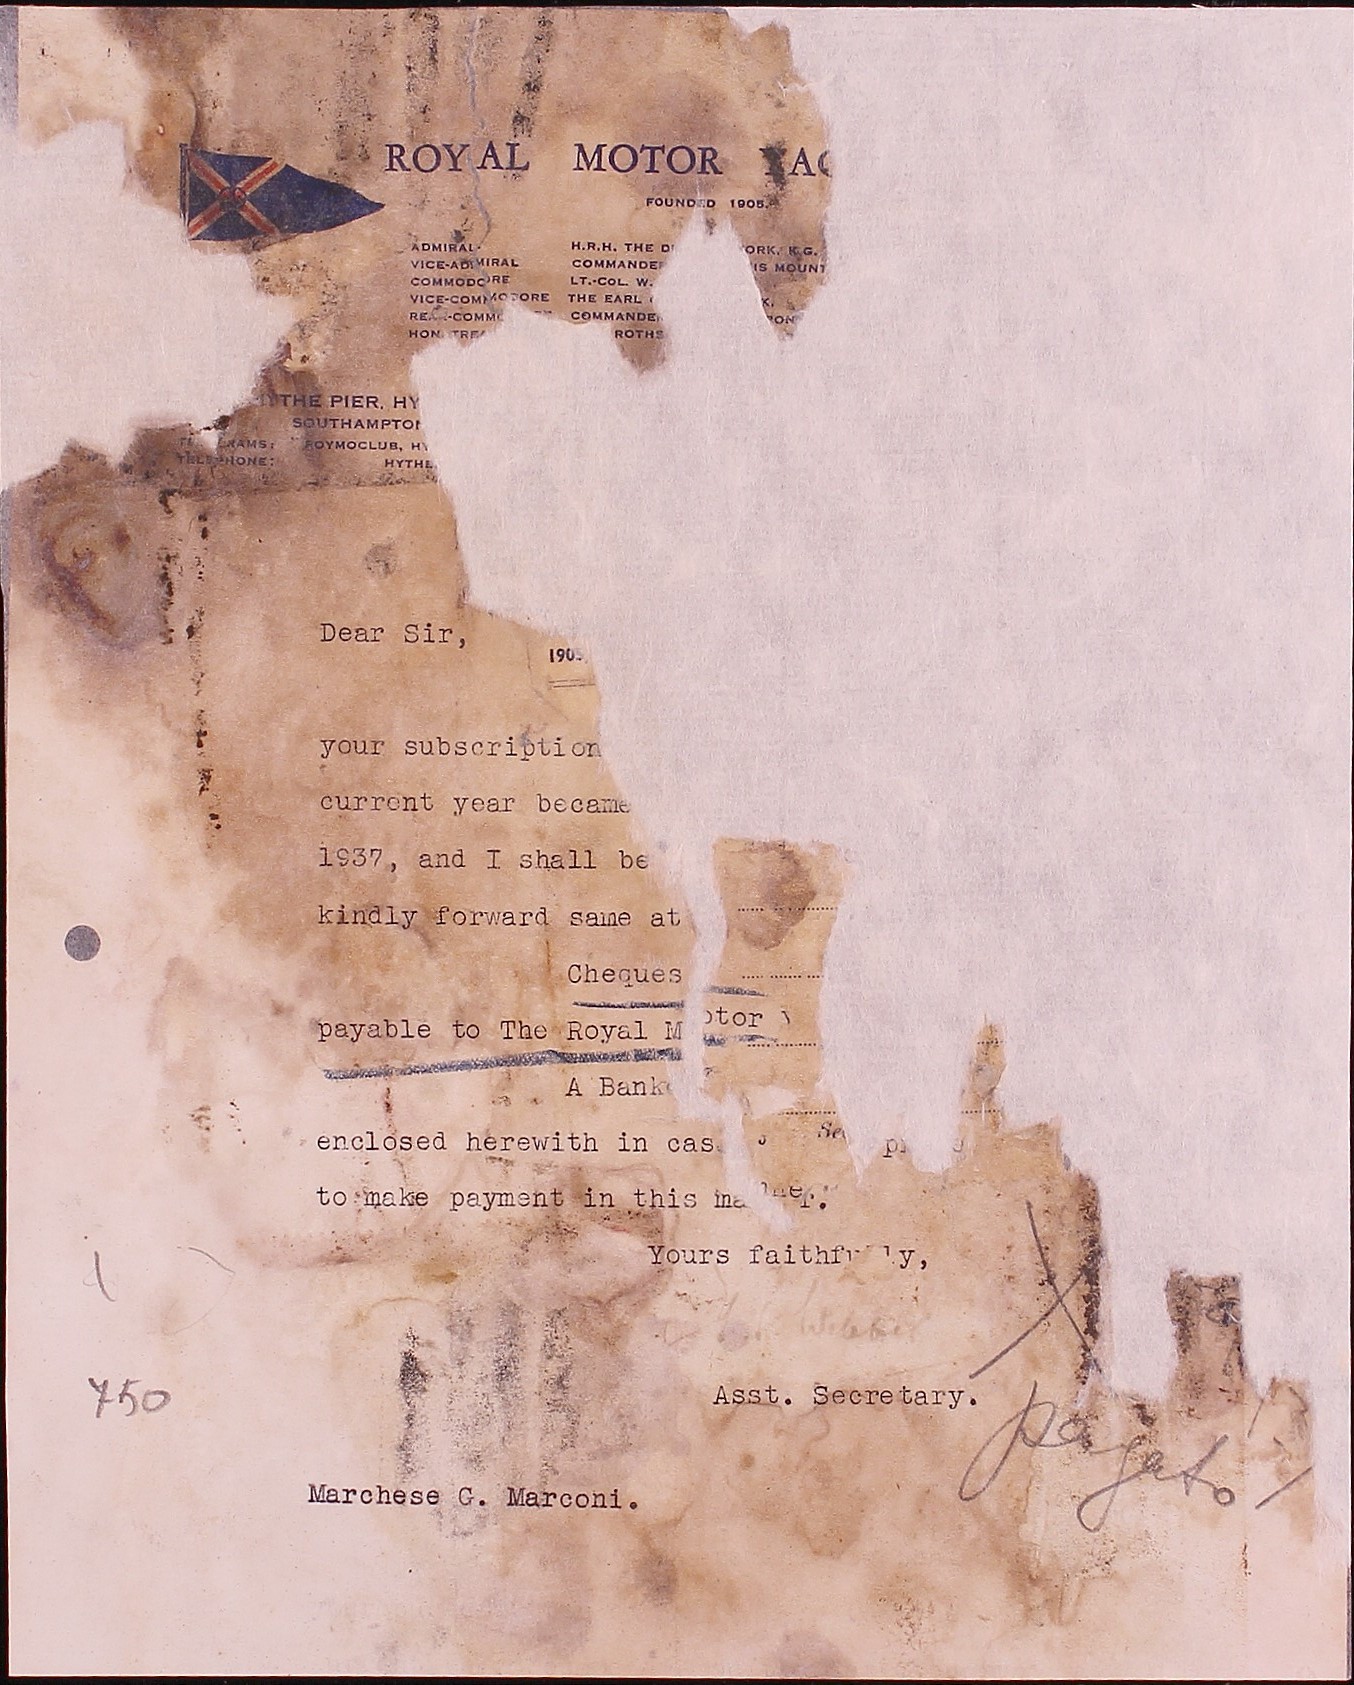 ROYAL MOTOR
FOUNDED 1905.
ADMIRAL H.R.H. THE
VICE-ADMIRAL COMMANDER
COMMODORE LT.-COL. W.
VICE-COMMODORE THE EARL
COMMANDER
HON.
THE PIER, HY
SOUTHAMPTON
ROYMOCLUB, HY
TELEPHONE: HYTHE
Dear Sir,
1905
your subscription
current year became
1937, and I shall be
kindly forward same at
Cheques
payable to The Royal Motor
A Bank
enclosed herewith in cas
to make payment in this manner.
Yours faithfully,
Asst. Secretary.
750
pagato
Marchese G. Marconi.